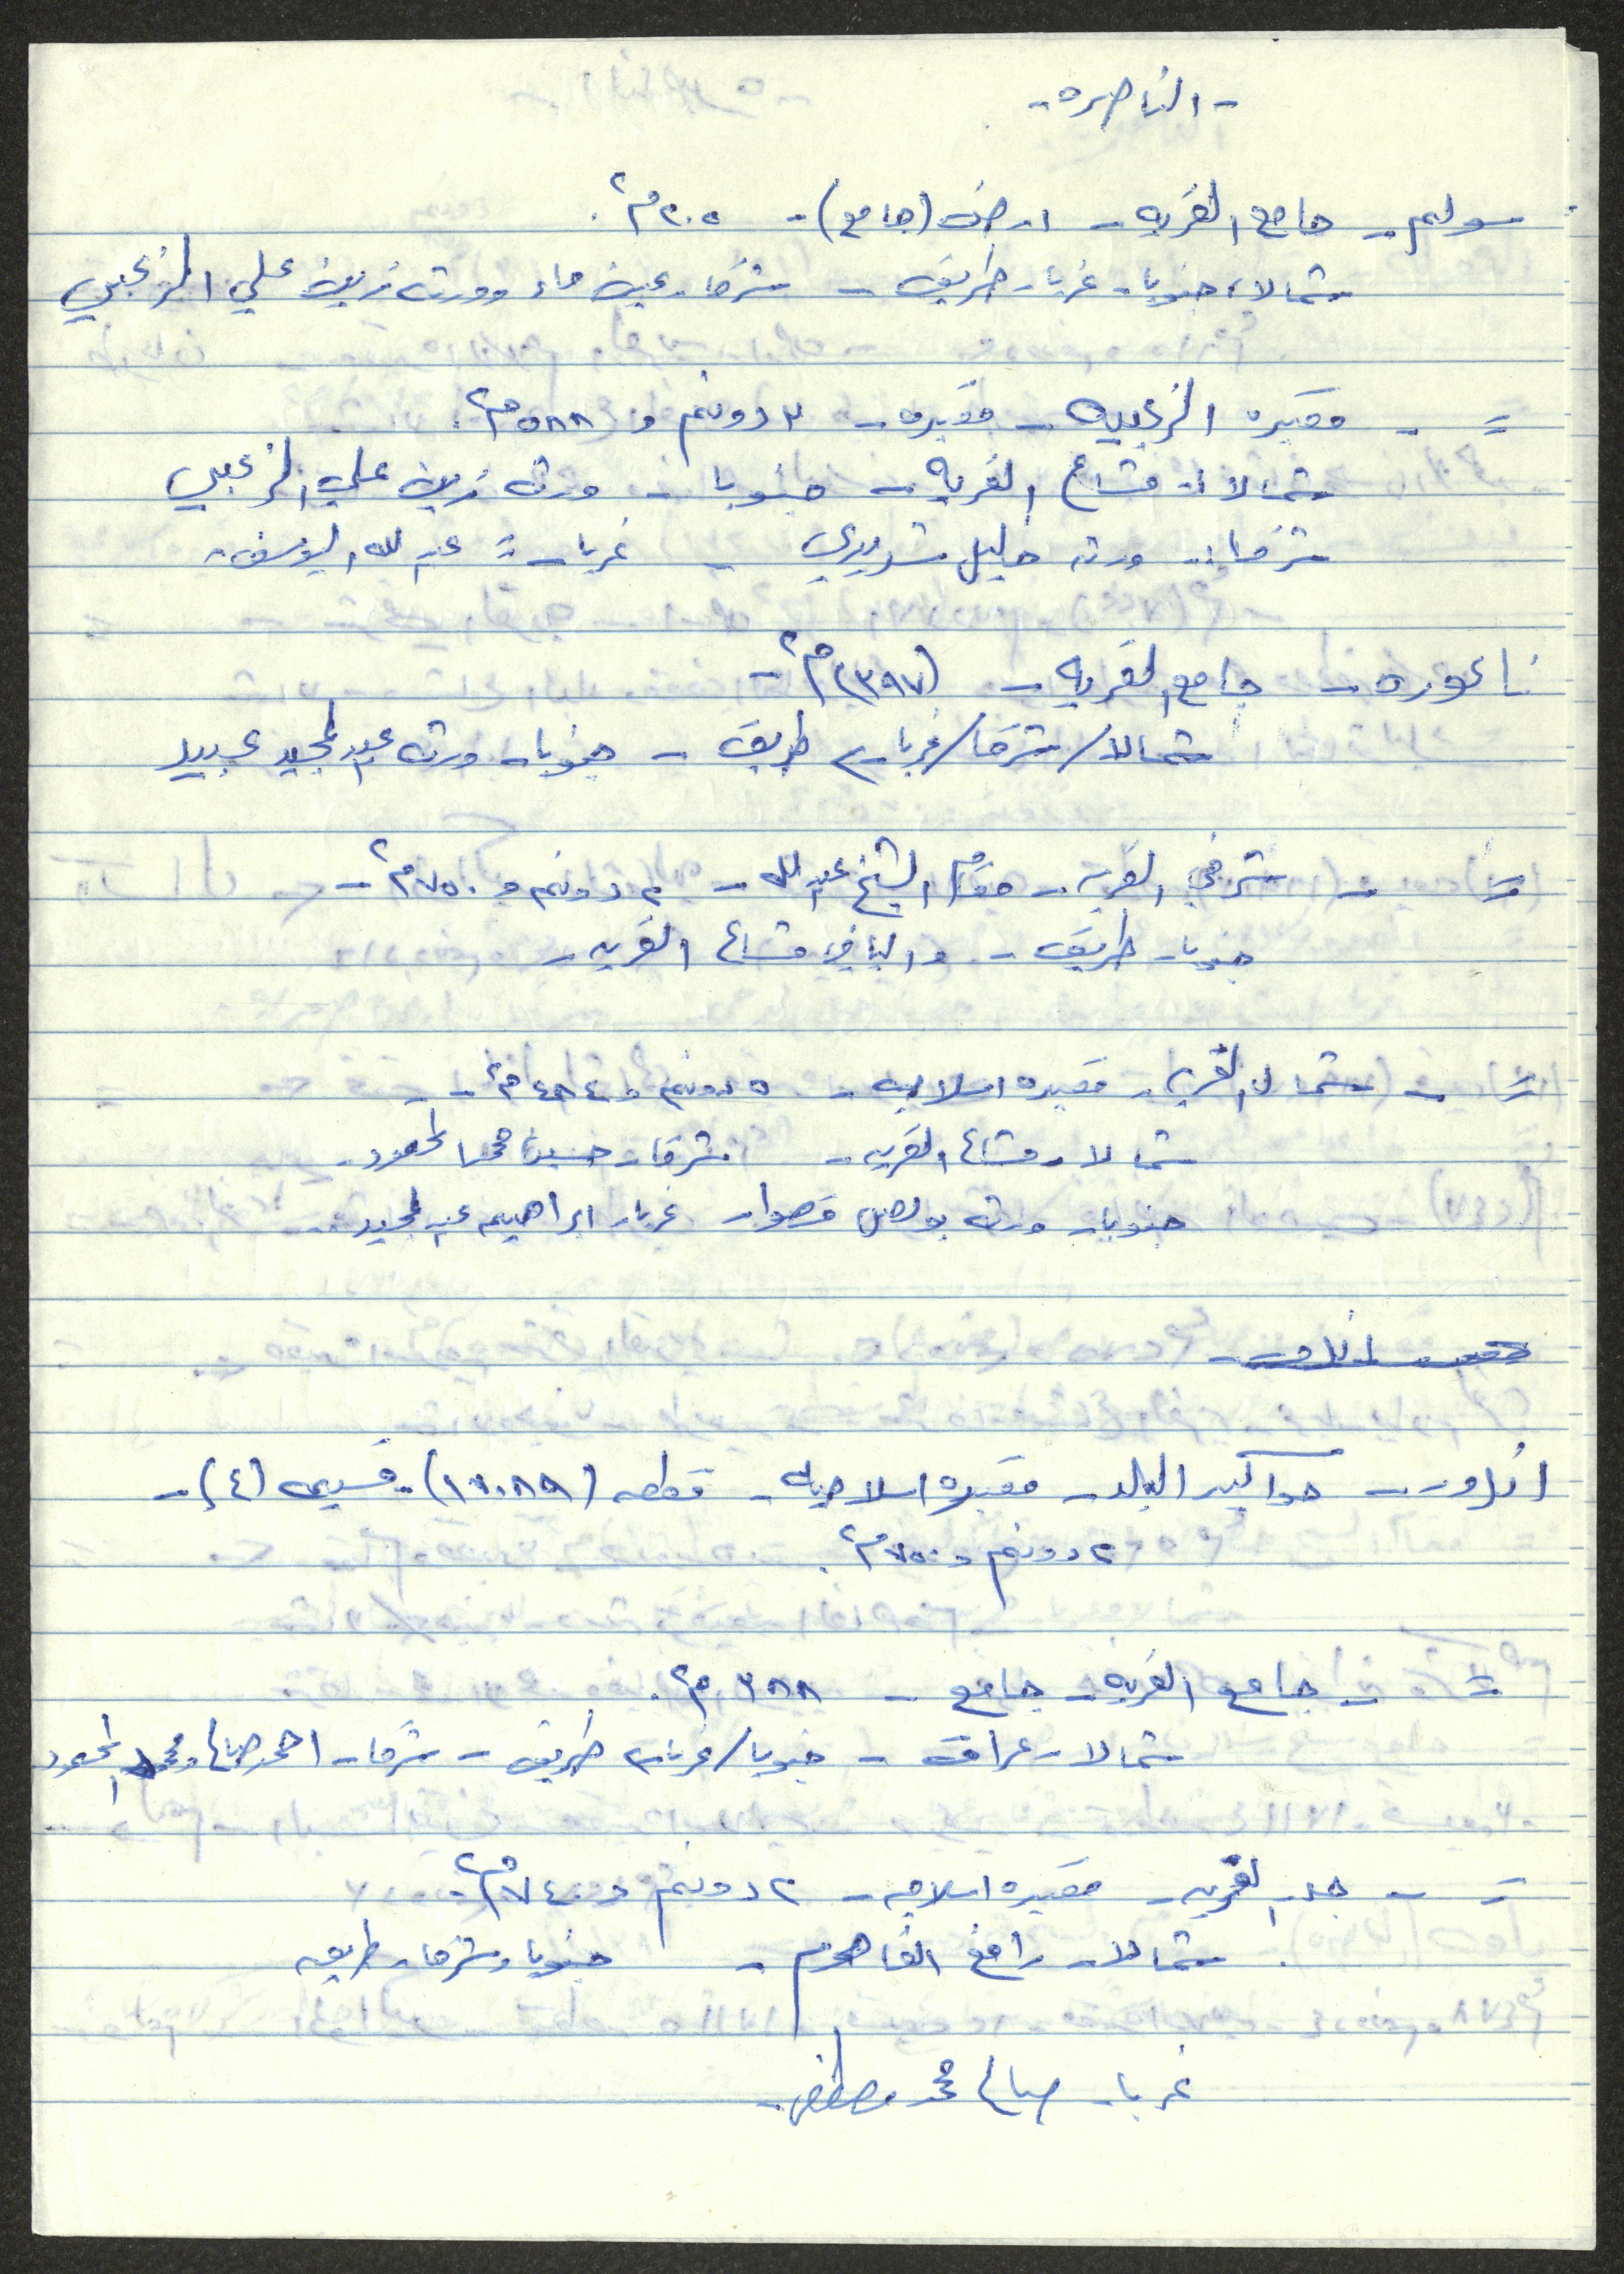 - الناصره -
سولم - جامع القريه - ارض (جامع) - ٢٠٥ م٢.
شمالا، جنوبا - غربا - طريق - شرقا - عين ماء وورثه زين علي الزعبي
= - مقبره الزعبيه - مقبره - ٣ دونم و ٥٨٨ م٢.
شمالا :- مشاع القريه - جنوبا - ورثه زين علي الزعبي
شرقا :- ورثه خليل شديدي - غربا :- عبد الله اليوسف -
ناعوره - جامع القريه - (٣٩٧) م٢ -
شمالا/شرقا/غربا - طريق - جنوبا - ورثه عبد المجيد عبيد
= - شرقي القريه - مقام الشيخ عبد الله - ٢ دونم و ٧٥٠ م٢ -
جنوبا - طريق - والباقي مشاع القريه -
= - شمال القريه - مقبره اسلاميه - ٥ دونم و ٤٨٤ م٢ - -
شمالا - مشاع القريه - شرقا - حسين محمد المحمود -
جنوبا - ورثه بولص قصوار غربا - ابراهيم عبد المجيد -
اندور - حواكير البلد - مقبره اسلاميه - قطعه (١٧٠٨٩) - قسيمه (٤) -
٢ دونم و ٧٥٠ م٢.
= - جامع القريه - جامع - ٣٨٨ م٢.
شمالا - عراق - جنوبا/غربا - طريق - شرقا - احمد صالح ومحمد المحمود
= - جدر القريه - مقبره اسلاميه - ٢ دونم و ٧٤٠ م٢ -
شمالا - رامز الفاهوم - جنوبا وشرقا - طريق
غربا - صالح محمد مصطفى -